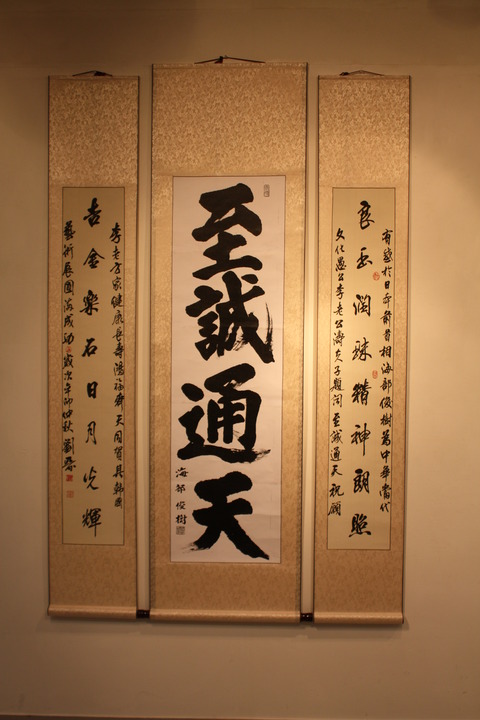 有感於日本前首相海部俊樹為中華當代
良玉潤珠精神朗照
文化愚公李老公濟夫子題詞至誠通天祝願
至誠通天
海部俊樹
李老子家健康長壽鴻福齊天同賀其韓國
吉金樂石日月光輝
藝術展圓滿成功歲次辛卯仲秋劉